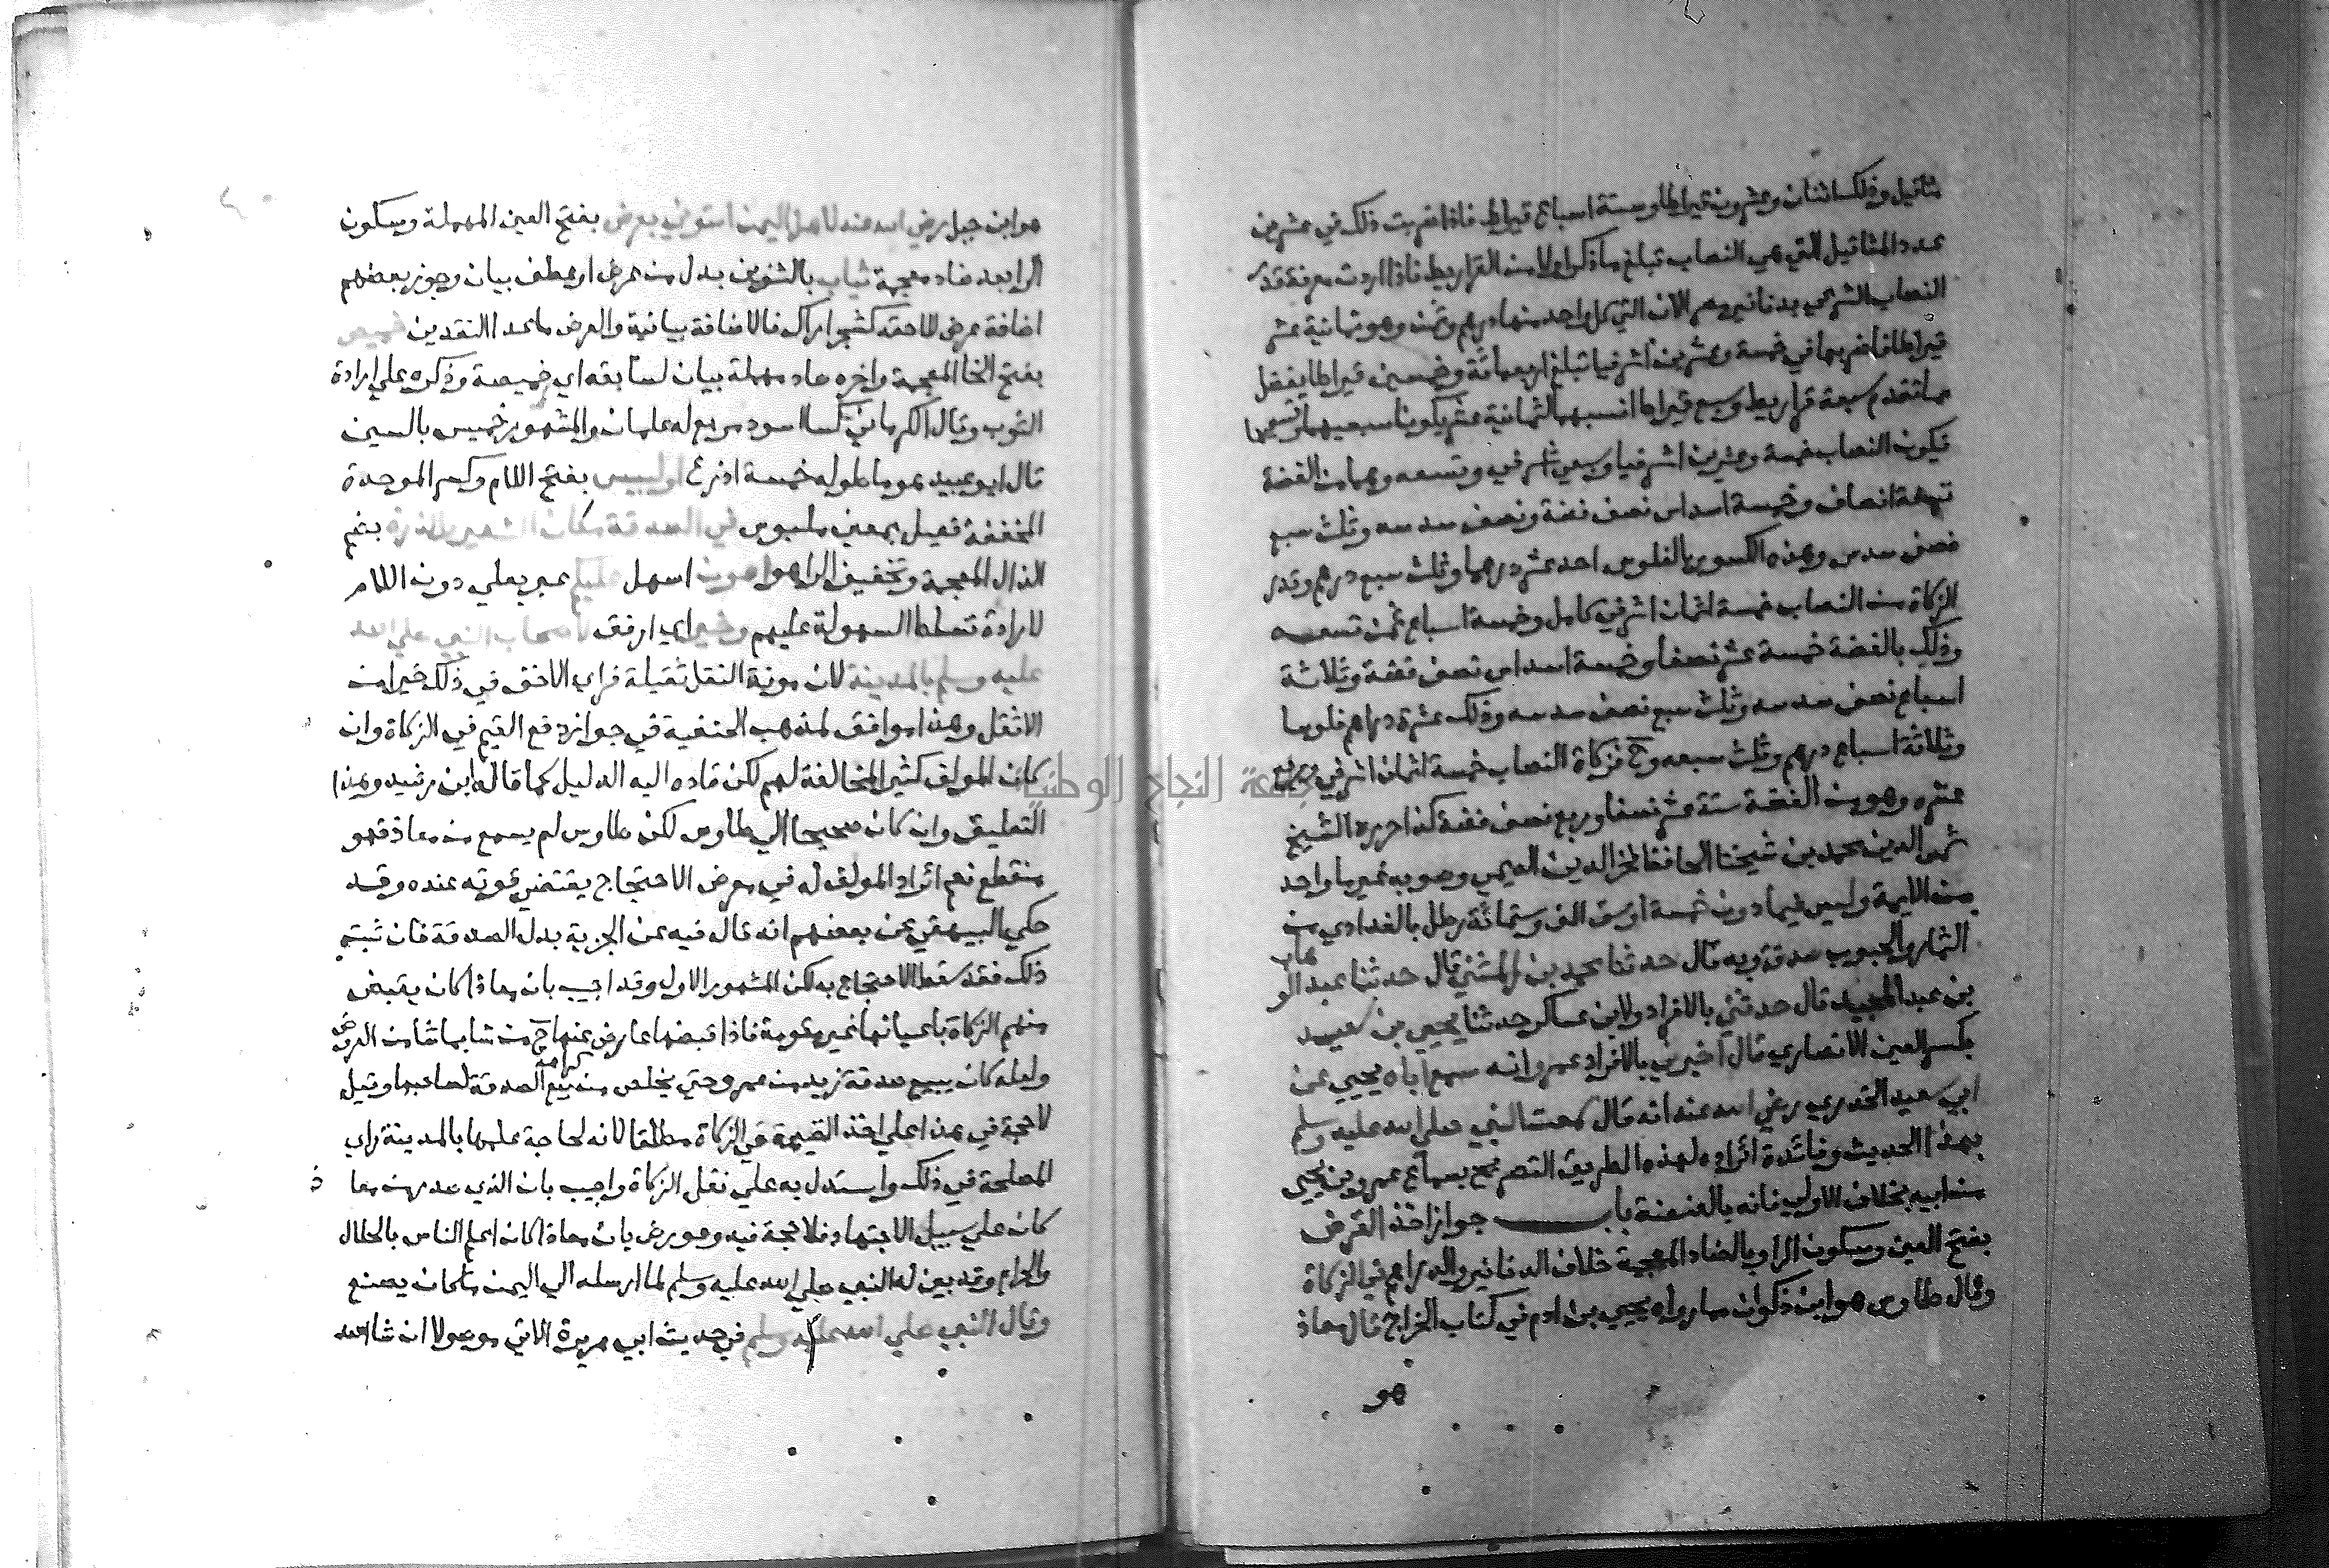 مثاقيل وذلك اثنان وعشرون قيراطا وستة اسباع قيراط فاذا ضربت ذلك في عشرين
عدد المثاقيل التي هي النصاب تبلغ ما ذكر اولا من القراريط فاذا اردت معرفة قدر
النصاب الشرعي بدنانير مصر الان التي كل واحد منها درهم وثمن وهو ثمانية عشر
قيراطا فاضربها في خمسة وعشرين اشرفيا تبلغ اربعمائة وخمسين قيراطا يفضل
مما تقدم سبعة قراريط وسبع قيراط انسبهما لثمانية عشر يكونا سبعيهما وتسعهما
فيكون النصاب خمسة وعشرين اشرفيا وسبعي اشرفي وتسعه وهما من الفضة
تسعة انصاف وخمسة اسداس نصف فضة ونصف سدسه وثلث سبع
نصف سدس وهذه الكسور بالفلوس احد عشر درهما وثلث سبع درهم وقدر
الزكاة من النصاب خمسة اثمان اشرفي كامل وخمسة اسباع ثمن تسعه
وذلك بالفضة خمسة عشر نصفا وخمسة اسداس نصف فضة وثلاثة
اسباع نصف سدسه وثلث سبع نصف سدسه وذلك عشرة دراهم فلوسا
وثلاثة اسباع درهم وثلث سبعه وح فزكاة النصاب خمسة اثمان اشرفي وربع
عشره وهو من الفضة ستة عشر نصفا وربع نصف فضة كذا حرره الشيخ
شمس الدين محمد بن شيخنا الحافظ فخر الدين الديمي وصوبه غير ما واحد
من الايمة وليس فيما دون خمسة اوسق الف وستمائة رطل بالغدادي من
الثمار والحبوب صدقة وبه قال حدثنا محمد بن المثنى قال حدثنا عبد الوهاب
بن عبد المجيد قال حدثني بالافراد ولابن عساكر حدثنا يحيى بن سعيد
بكسر العين الانصاري قال اخبرني بالافراد عمرو انه سمع اباه يحيى عن
ابي سعيد الخدري رضي الله عنه انه قال سمعت النبي صلى الله عليه وسلم
بهذا الحديث وفائدة ايراده لهذه الطريق التصريح بسماع عمرو بن يحيى
من ابيه بخلاف الاولى فانه بالعنعنة باب جواز اخذ العرض
بفتح العين وسكون الرا وبالضاد المعجمة خلاف الدنانير والدراهم في الزكاة
وقال طاوس هو ابن ذكوان مما رواه يحيى بن ادم في كتاب الخراج قال معاذ
هو
هو ابن جبل رضي الله عنه لاهل اليمن ائتوني بعرض بفتح العين المهملة وسكون
الرا بعده ضاد معجمة ثياب بالتنوين بدل من عرض او عطف بيان وجوز بعضهم
اضافة عرض للاحقه كشجر اراك فالاضافة بيانية والعرض ما عدا النقدين خميص
بفتح الخا المعجمة واخره صاد مهملة بيان لسابقه اي خميصة وذكره على ارادة
الثوب وقال الكرماني كسا اسود مربع له علمان والمشهور خميس بالسين
قال ابو عبيد هو ما طوله خمسة اذرع او لبيس بفتح اللام وكسر الموحدة
المخففة فعيل بمعنى ملبوس في الصدقة مكان الشعير والذرة بضم
الذال المعجمة وتخفيف الرا هو اهون اسهل عليكم عبر بعلى دون اللام
لارادة تسلط السهولة عليهم وخير اي ارفق لاصحاب النبي صلى الله
عليه وسلم بالمدينة لان مونة النقل ثقيلة فراى الاخف في ذلك خيرا من
الاثقل وهذا موافق لمذهب الحنفية في جواز دفع القيم في الزكاة وان
كان المولف كثير المخالفة لهم لكن قاده اليه الدليل كما قاله ابن رشيد وهذا
التعليق وان كان صحيحا الى طاوس لكن طاوس لم يسمع من معاذ فهو
منقطع نعم ايراد المولف له في معرض الاحتجاج يقتضي قوته عنده وقد
حكى البيهقي عن بعضهم انه قال فيه من الجزية بدل الصدقة فان ثبت
ذلك فقد سقط الاحتجاج به لكن المشهور الاول وقد اجيب بان معاذا كان يقبض
منهم الزكاة باعيانها غير مقومة فاذا قبضها عاوض عنها ح من شا بما شا من العروض
ولعله كان يبيع صدقة زيد من عمرو حتى يخلص من كراهة بيع الصدقة لصاحبها وقيل
لا حجة في هذا على اخذ القيمة في الزكاة مطلقا لانه لحاجة علمها بالمدينة راى
المصلحة في ذلك واستدل به على نقل الزكاة واجيب بان الذي صدر من معاذ
كان على سبيل الاجتهاد فلا حجة فيه وعورض بان معاذا كان اعلم الناس بالحلال
والحرام وقد بين له النبي صلى الله عليه وسلم لما ارسله الى اليمن ما كان يصنع
وقال النبي صلى الله عليه وسلم في حديث ابي هريرة الاتي موصولا ان شا الله
جامعة النجاح الوطنية